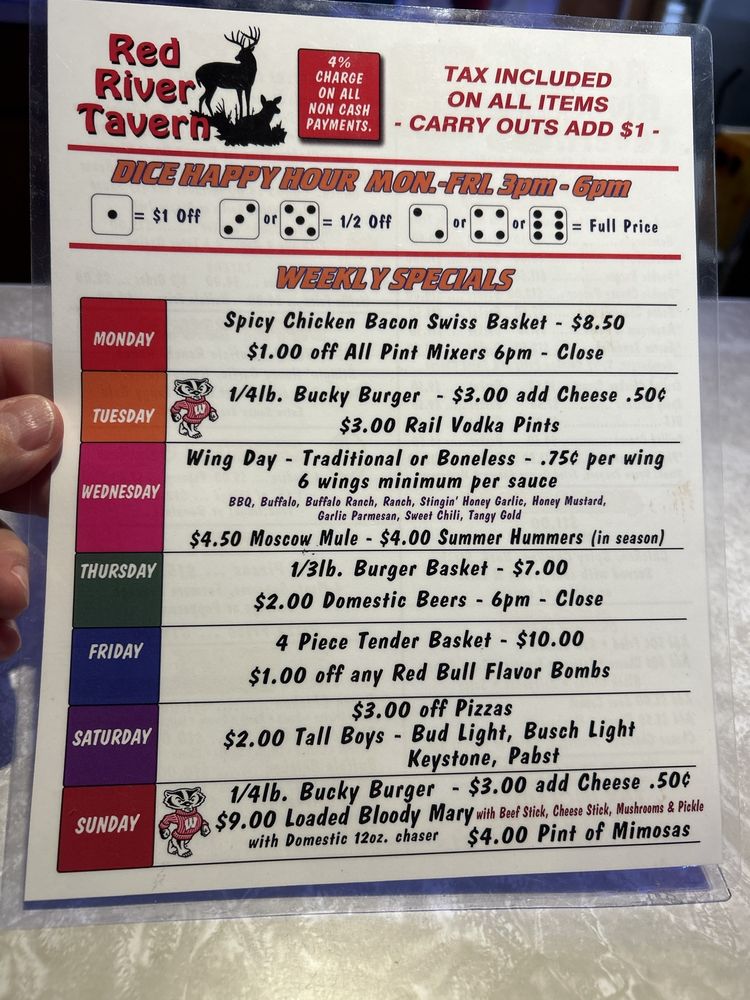 Red
River
Tavern
4%
CHARGE
ON ALL
NON CASH
PAYMENTS.
TAX INCLUDED
ON ALL ITEMS
- CARRY OUTS ADD $1 -
DICE HAPPY HOUR MON.-FRI. 3pm - 6pm
= $1 Off or = 1/2 Off or or = Full Price
WEEKLY SPECIALS
MONDAY
Spicy Chicken Bacon Swiss Basket - $8.50
$1.00 off All Pint Mixers 6pm - Close
TUESDAY
1/4lb. Bucky Burger - $3.00 add Cheese .50¢
$3.00 Rail Vodka Pints
WEDNESDAY
Wing Day - Traditional or Boneless - .75¢ per wing
6 wings minimum per sauce
BBQ, Buffalo, Buffalo Ranch, Ranch, Stingin' Honey Garlic, Honey Mustard,
Garlic Parmesan, Sweet Chili, Tangy Gold
$4.50 Moscow Mule - $4.00 Summer Hummers (in season)
THURSDAY
1/3lb. Burger Basket - $7.00
$2.00 Domestic Beers - 6pm - Close
FRIDAY
4 Piece Tender Basket - $10.00
$1.00 off any Red Bull Flavor Bombs
SATURDAY
$3.00 off Pizzas
$2.00 Tall Boys - Bud Light, Busch Light
Keystone, Pabst
SUNDAY
1/4lb. Bucky Burger - $3.00 add Cheese .50¢
$9.00 Loaded Bloody Mary with Beef Stick, Cheese Stick, Mushrooms & Pickle
with Domestic 12oz. chaser $4.00 Pint of Mimosas
W
W